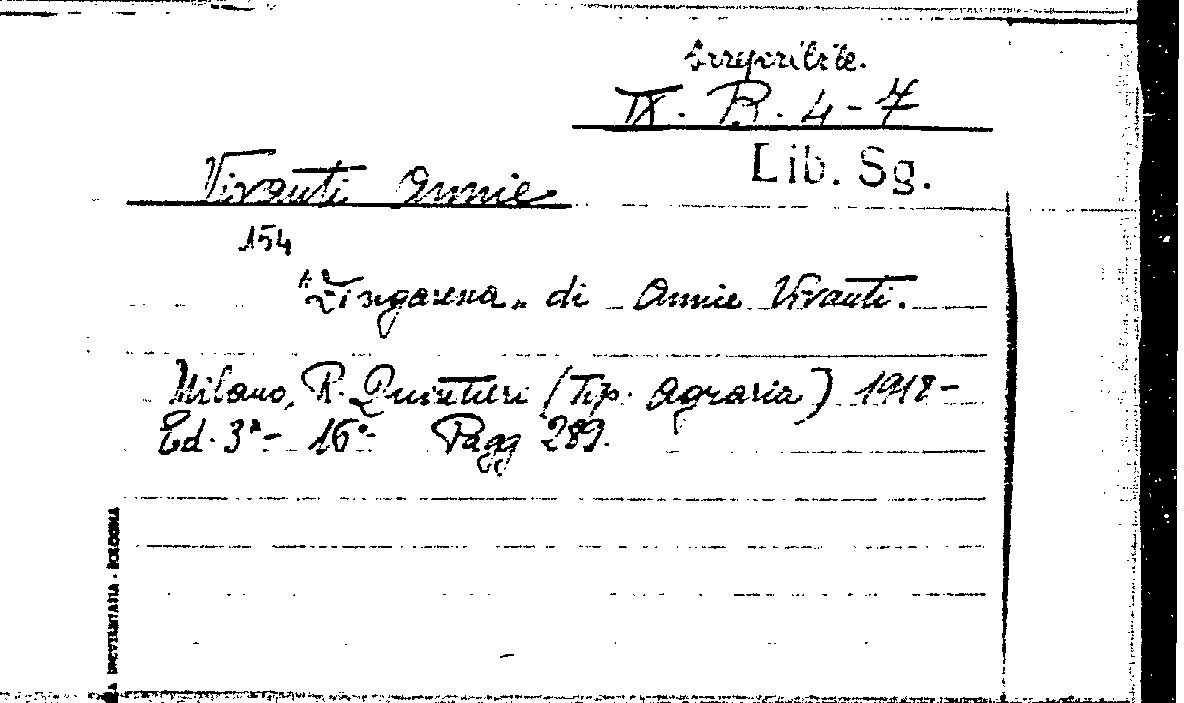 Irreperibile.
IX. B. 4-7
Lib. Sg.
Vivanti Annie
154
"Zingaresca" di Annie Vivanti.
Milano, R. Quintieri (Tip. Agraria) 1918-
Ed. 3ª- 16°- Pagg 289.
BOLOGNA